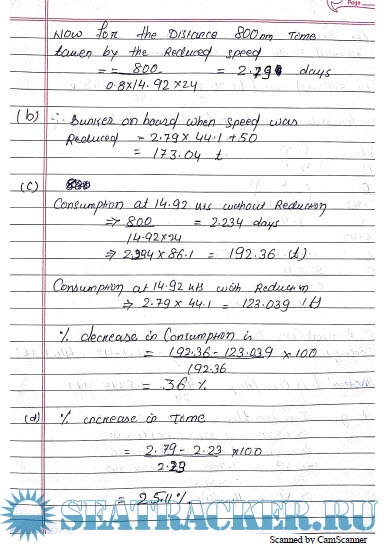 Page
Now for the Distance 800nm Time
taken by the Reduced speed
= 800 / 0.8×14.92×24 = 2.79 days
(b) ∴ Bunker on board when speed was
Reduced = 2.79 × 44.1 + 50
= 173.04 t.
(c)
Consumption at 14.92 kts without Reduction
⇒ 800 / 14.92×24 = 2.234 days
⇒ 2.234 × 86.1 = 192.36 (t)
Consumption at 14.92 kts with Reduction
⇒ 2.79 × 44.1 = 123.039 (t)
% decrease in Consumption is
= 192.36 - 123.039 / 192.36 × 100
= 36 %
(d) % increase in Time
= 2.79 - 2.23 / 2.23 × 100
= 25.11 %
SEATRACKER.RU
Scanned by CamScanner